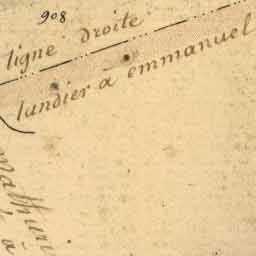 908
ligne droite
lundier a emmanuel
mathuri